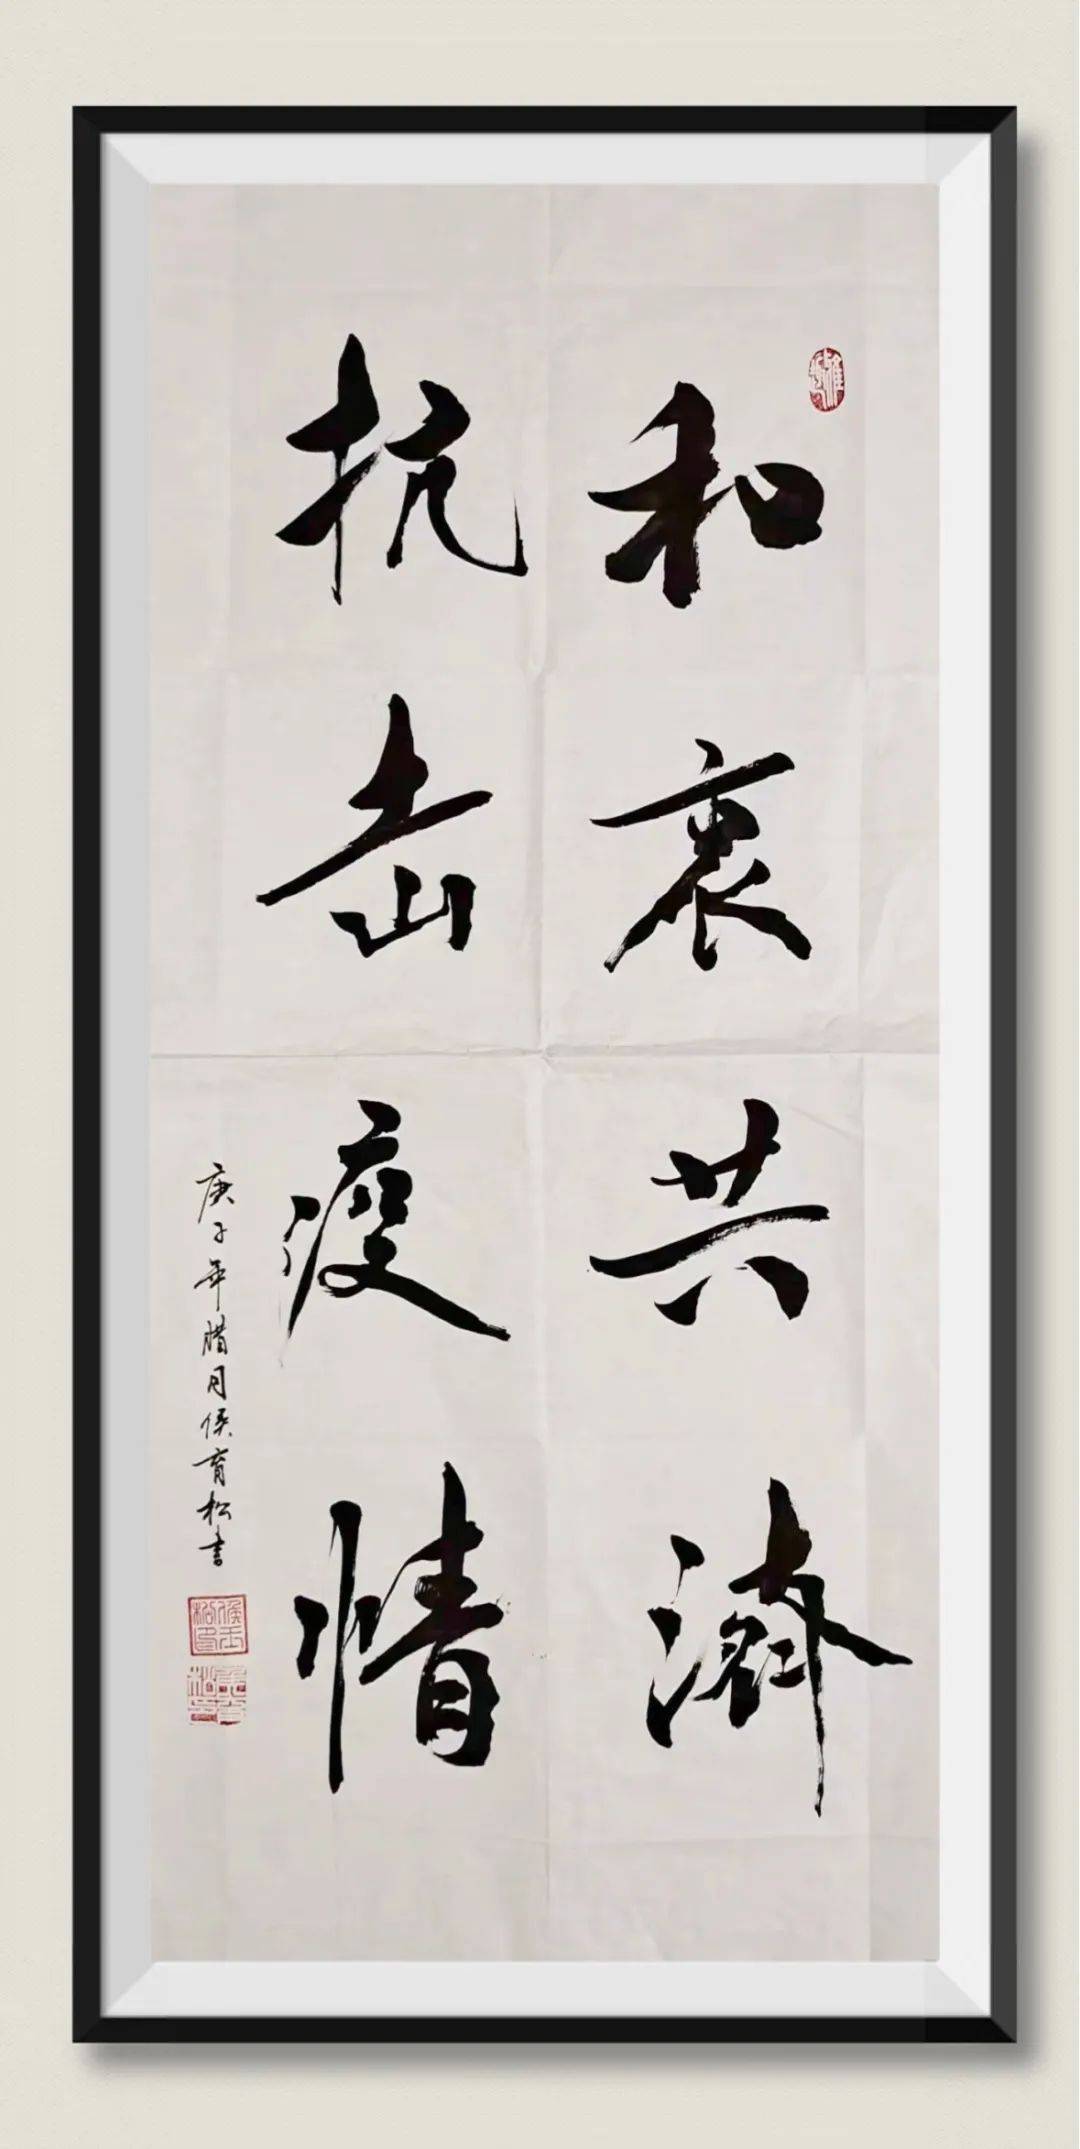 和衷共济
抗击疫情
庚子年腊月侯育松书